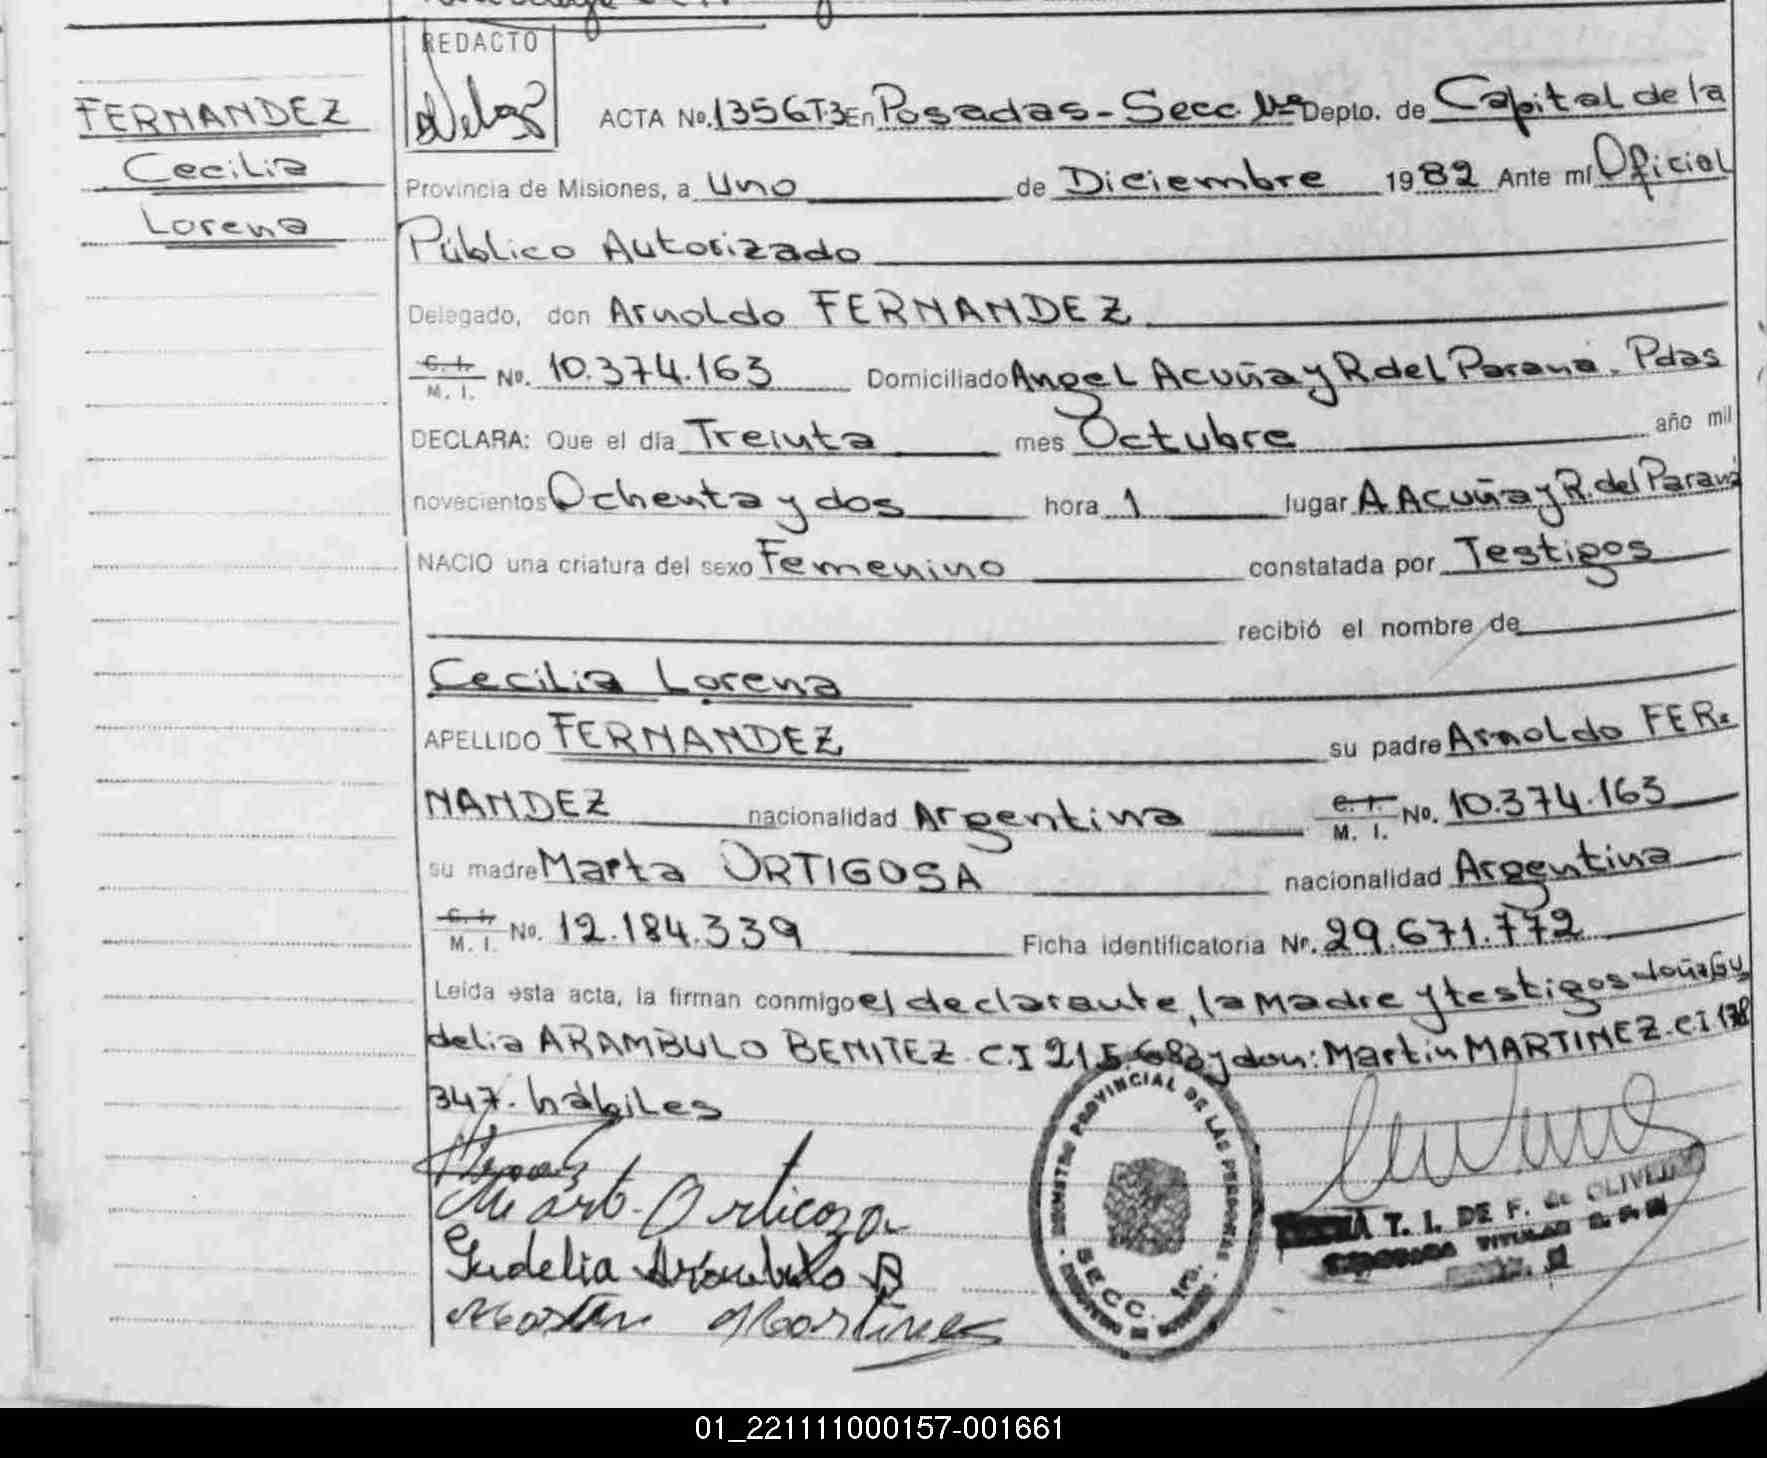 REDACTO
FERNANDEZ
Cecilia
Lorena
ACTA No. 1356T3 En Posadas - Secc 1ra Depto. de Capital de la
Provincia de Misiones, a Uno de Diciembre 1982 Ante mí Oficial
Público Autorizado
Delegado, don Arnoldo FERNANDEZ
C. I. M. I. No. 10.374.163 Domiciliado Angel Acuña y R del Paraná. Pdas
DECLARA: Que el día Treinta mes Octubre año mil
novecientos Ochenta y dos hora 1 lugar A Acuña y R. del Paraná
NACIO una criatura del sexo Femenino constatada por Testigos
recibió el nombre de
Cecilia Lorena
APELLIDO FERNANDEZ su padre Arnoldo FER=
NANDEZ nacionalidad Argentina C. I. M. I. No. 10.374.163
su madre Marta ORTIGOSA nacionalidad Argentina
C. I. M. I. No. 12.184.339 Ficha identificatoria Nº. 29.671.772
Leída esta acta, la firman conmigo el declarante, la Madre y testigos doña Gu
delia ARAMBULO BENITEZ. C.I 215.683 y don: Martin MARTINEZ. C I 178
347. hábiles
Mart. Orticoza
Gudelia Arambulo B
Martin Martines
REGISTRO PROVINCIAL DE LAS PERSONAS
SECC. 1ra.
T. I. DE F. de OLIVERA
TITULAR
01_221111000157-001661